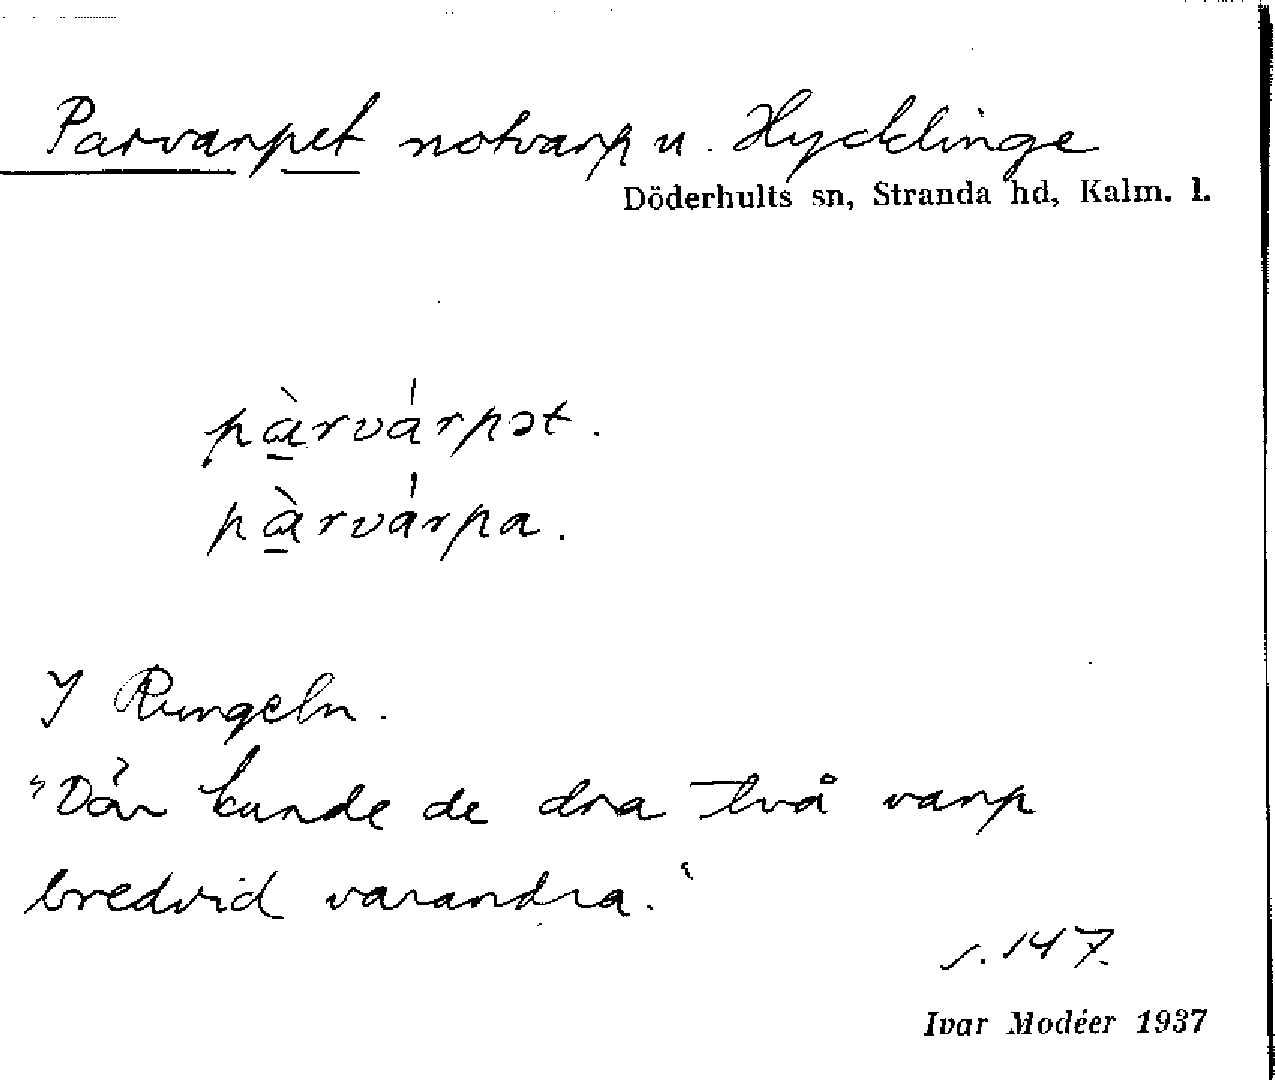 Parvarpet notvarp u. Hycklinge
Döderhults sn, Stranda hd, Kalm. l.
pàrvárpət.
pàrvárpa.
I Rungeln.
"Där kunde de dra två varp
bredvid varandra."
s. 147.
Ivar Modéer 1937